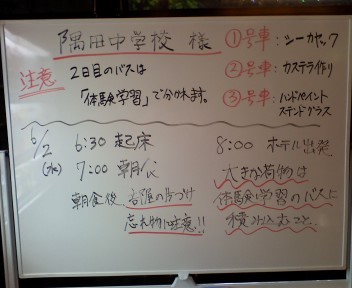 隅田中学校 様
注意
2日目のバスは
「体験学習」で分かれます。
①号車:シーカヤック
②号車:カステラ作り
③号車:ハンドペイント
ステンドグラス
6/2
(水)
6:30 起床
7:00 朝食
朝食後 お部屋の片づけ
忘れ物に注意!!
8:00 ホテル出発
大きな荷物は
体験学習のバスに
積みこむこと。